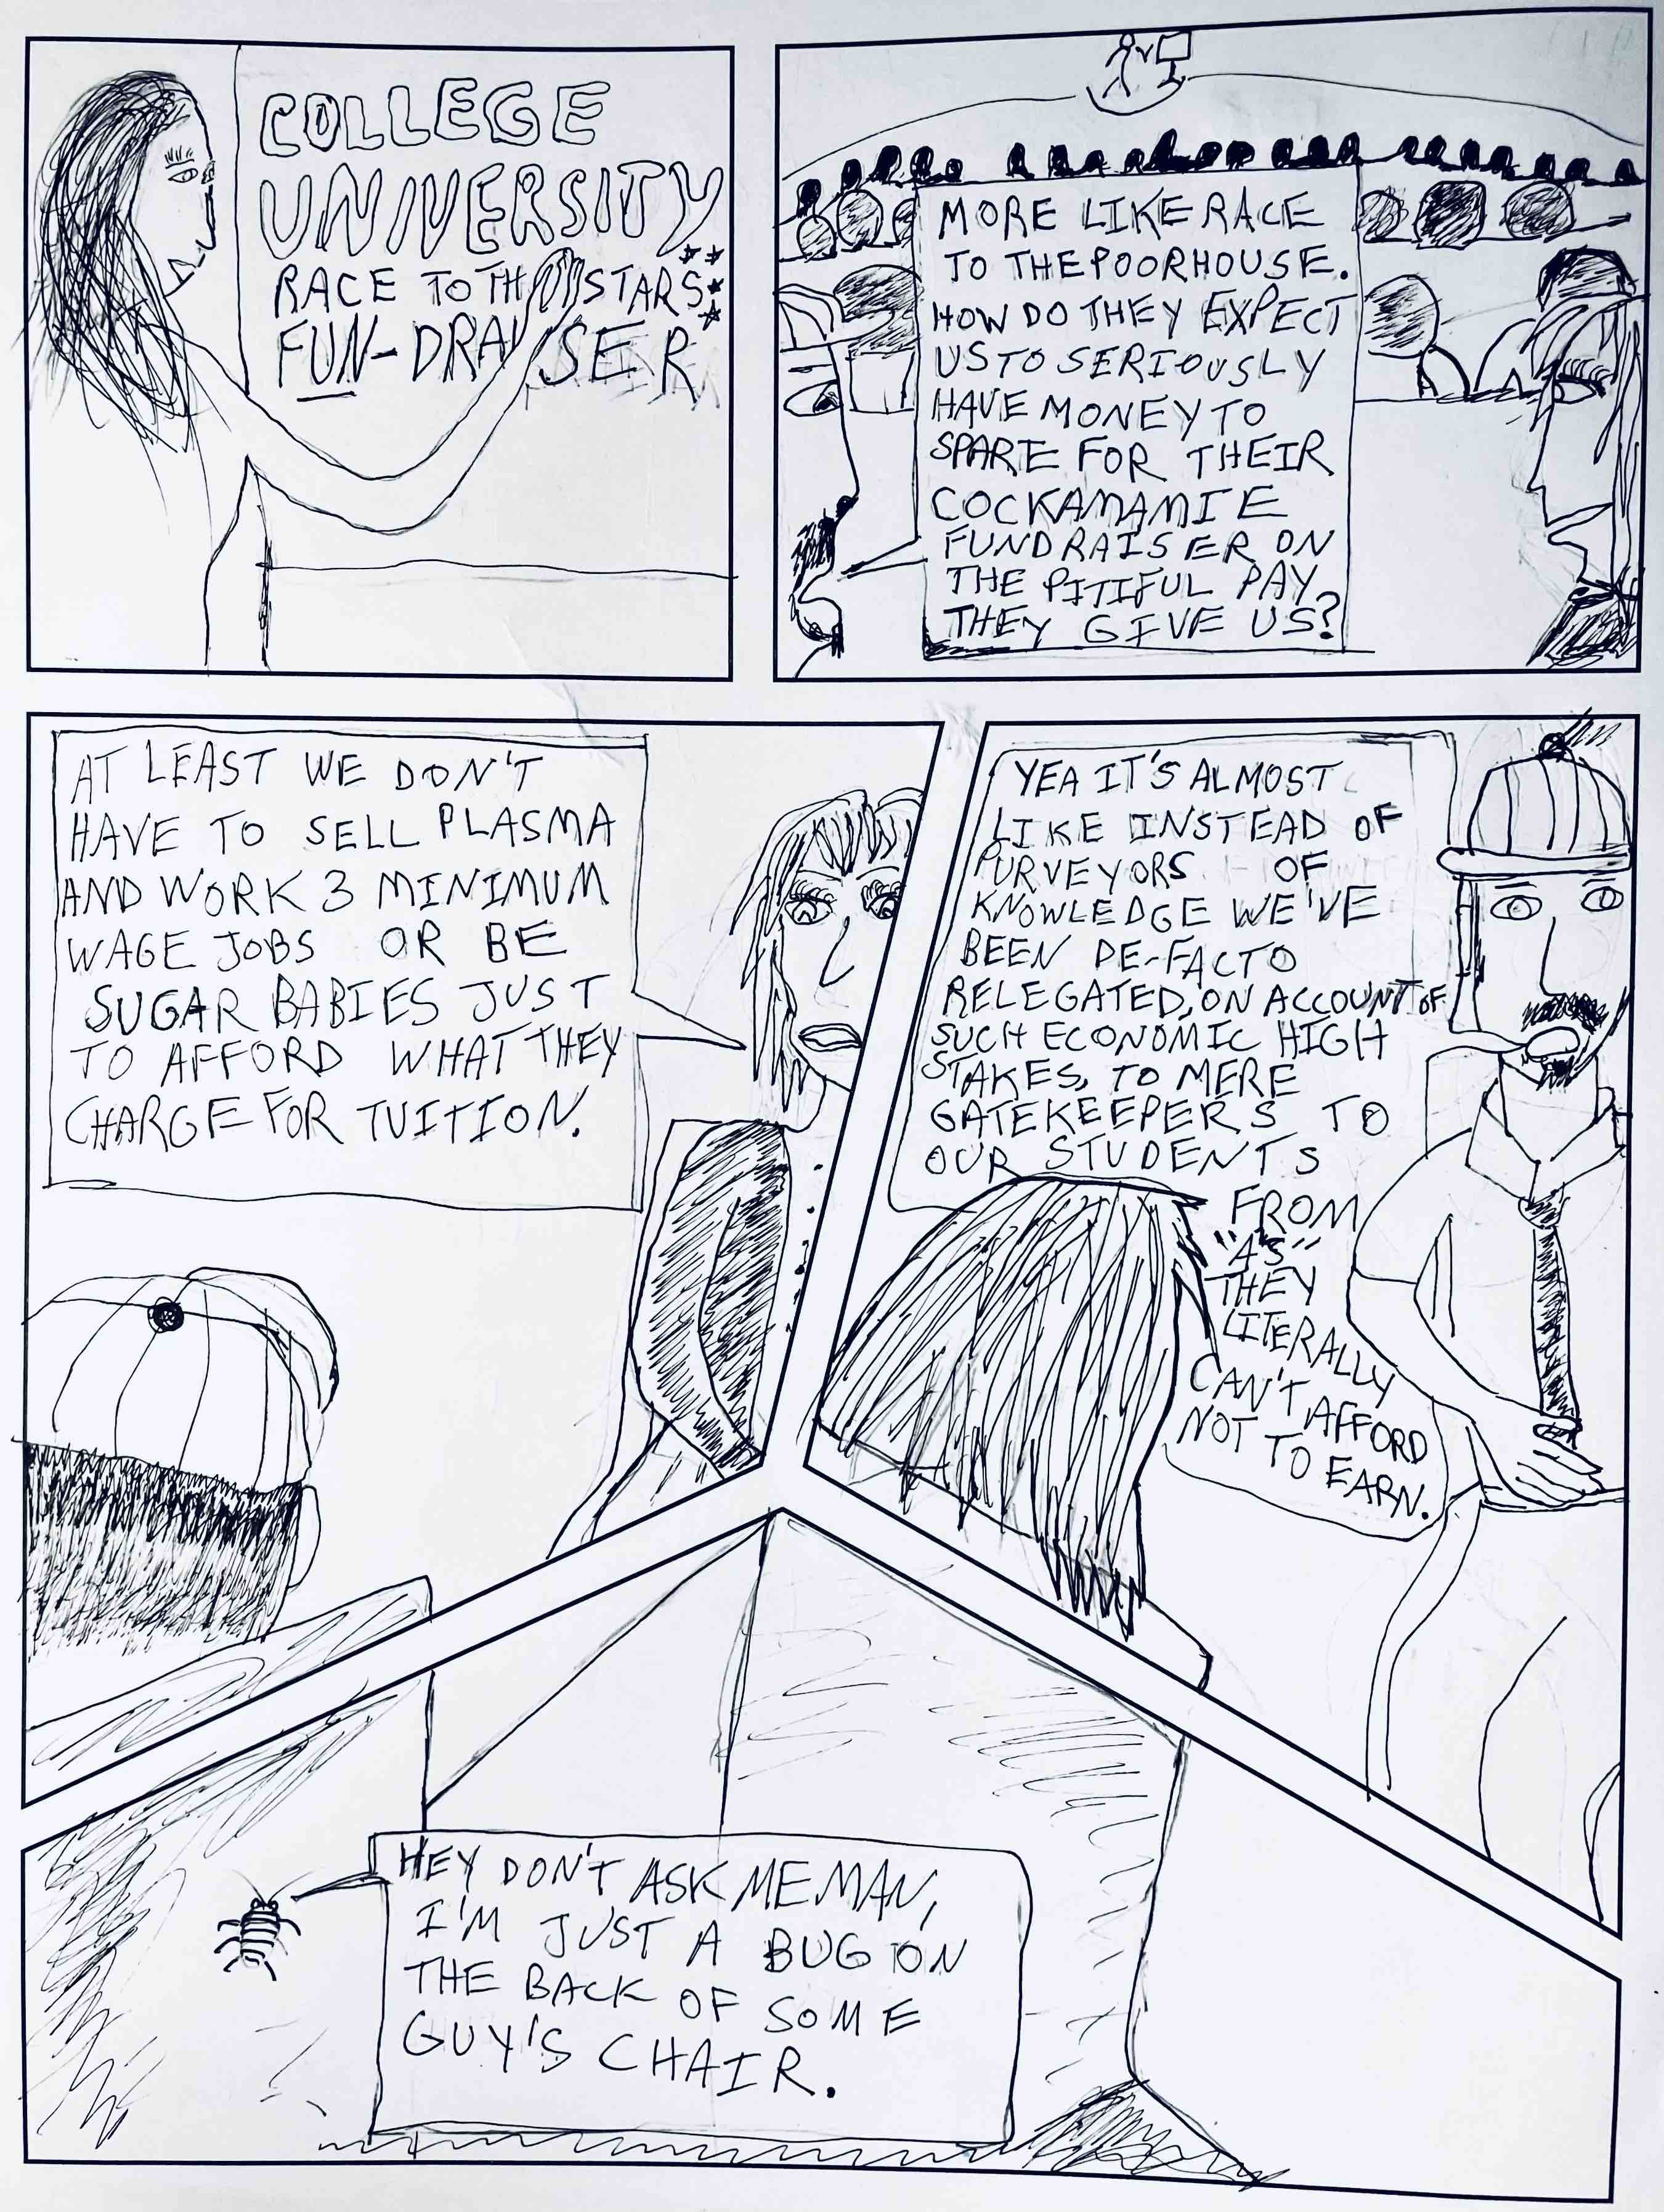 COLLEGE
UNIVERSITY
RACE TO TH STARS
FUN-DRAISER
MORE LIKE RACE
TO THE POORHOUSE.
HOW DO THEY EXPECT
US TO SERIOUSLY
HAVE MONEY TO
SPARE FOR THEIR
COCKAMAMIE
FUNDRAISER ON
THE PITIFUL PAY
THEY GIVE US?
AT LEAST WE DON'T
HAVE TO SELL PLASMA
AND WORK 3 MINIMUM
WAGE JOBS OR BE
SUGAR BABIES JUST
TO AFFORD WHAT THEY
CHARGE FOR TUITION.
YEA IT'S ALMOST
LIKE INSTEAD OF
PURVEYORS OF
KNOWLEDGE WE'VE
BEEN DE-FACTO
RELEGATED, ON ACCOUNT OF
SUCH ECONOMIC HIGH
STAKES, TO MERE
GATEKEEPERS TO
OUR STUDENTS
FROM
"A'S"
THEY
LITERALLY
CAN'T AFFORD
NOT TO EARN.
HEY DON'T ASK ME MAN,
I'M JUST A BUG ON
THE BACK OF SOME
GUY'S CHAIR.